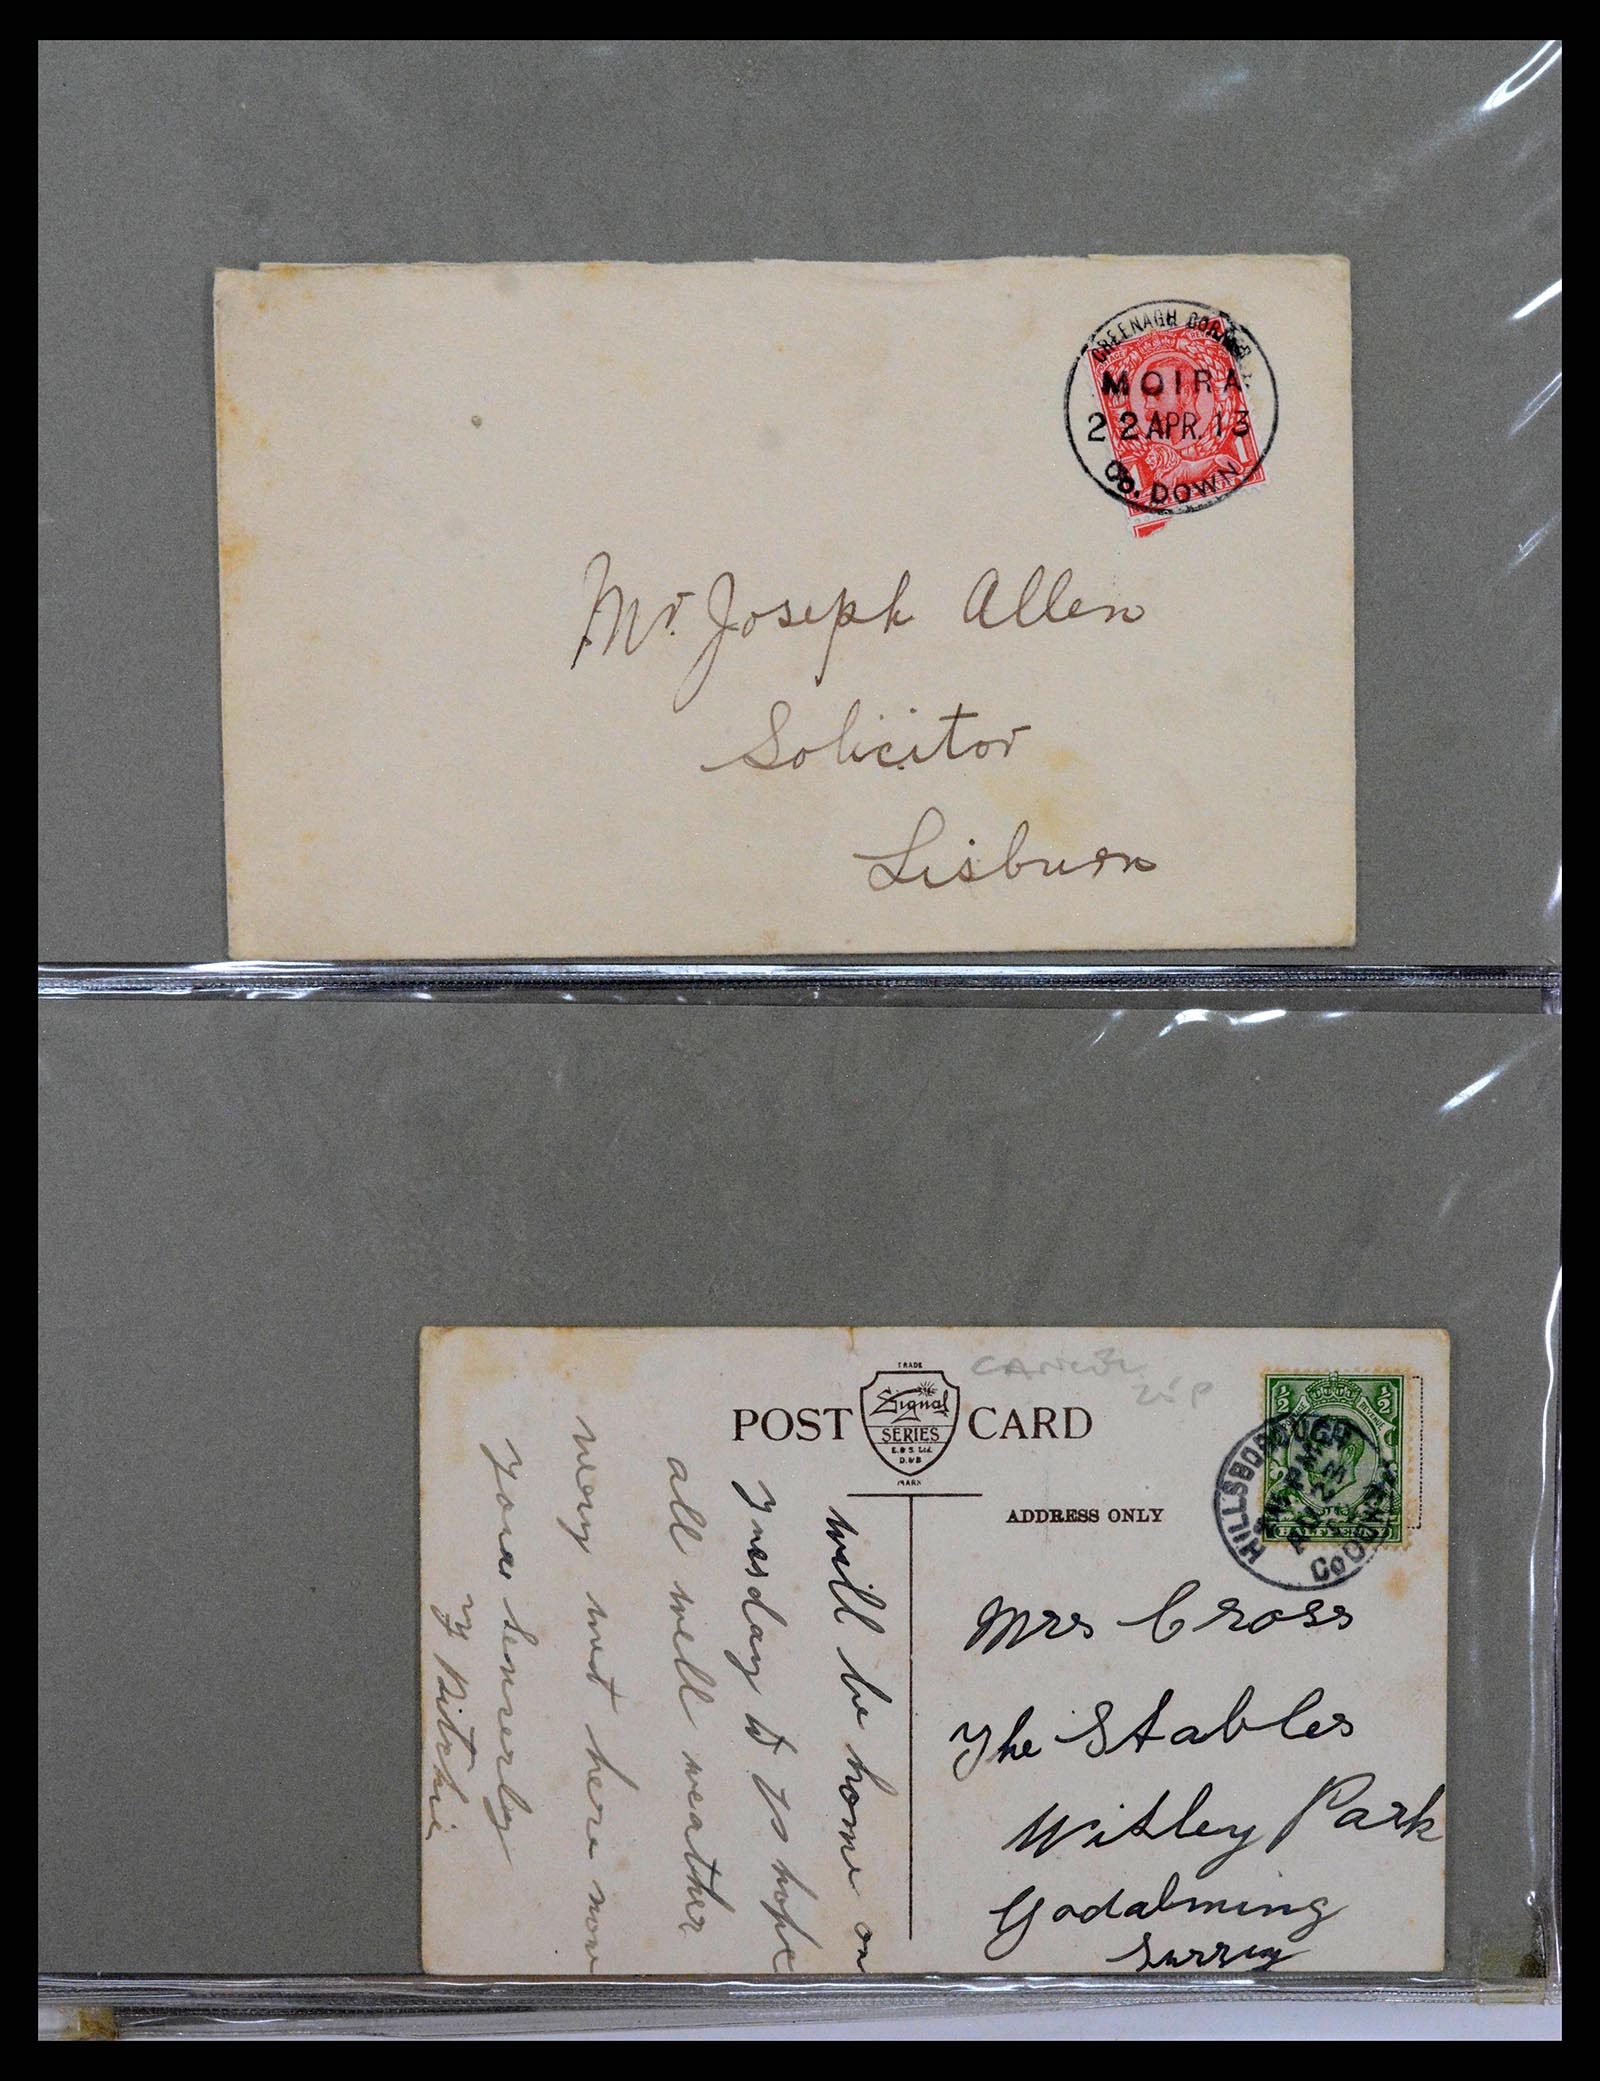 MOIRA
22 APR. 13
Co. DOWN
Mr. Joseph Allen
Solicitor
Lisburn
TRADE
POST CARD
Signal
SERIES
E. & S. Ltd.
D. & B
MARK
ADDRESS ONLY
HILLSBOROUGH
AU 2
Co DOWN
1/2 1/2
HALFPENNY
Mrs Cross
The Stables
Witley Park
Godalming
Surrey
will be home on
Tuesday
hope
all well weather
very wet here now
Yours Sincerely
Ritchie